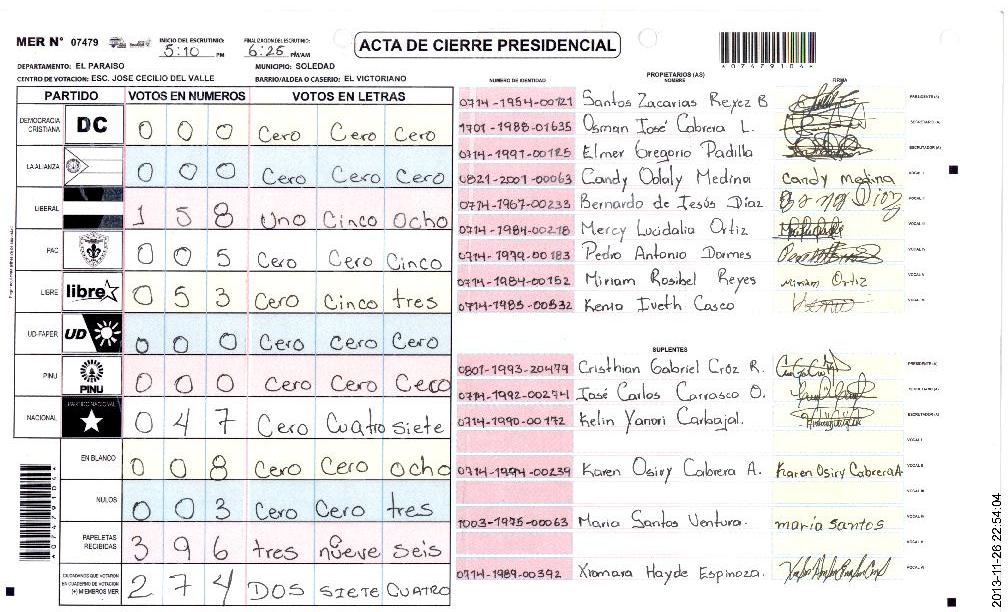 MER N° 07479 INICIO DEL ESCRUTINIO: 5:10 PM FINALIZACION DEL ESCRUTINIO: 6:25 PM/AM
ACTA DE CIERRE PRESIDENCIAL
A07479104A
DEPARTAMENTO: EL PARAISO MUNICIPIO: SOLEDAD
CENTRO DE VOTACION: ESC. JOSE CECILIO DEL VALLE BARRIO/ALDEA O CASERIO: EL VICTORIANO
PARTIDO VOTOS EN NUMEROS VOTOS EN LETRAS
DEMOCRACIA CRISTIANA DC 0 0 0 Cero Cero Cero
LA ALIANZA 0 0 0 Cero Cero Cero
LIBERAL 1 5 8 Uno Cinco Ocho
PAC 0 0 5 Cero Cero Cinco
LIBRE libre 0 5 3 Cero Cinco tres
UD-FAPER UD 0 0 0 Cero Cero Cero
PINU PINU 0 0 0 Cero Cero Cero
NACIONAL PARTIDO NACIONAL 0 4 7 Cero Cuatro siete
EN BLANCO 0 0 8 Cero Cero Ocho
NULOS 0 0 3 Cero Cero tres
PAPELETAS RECIBIDAS 3 9 6 tres nueve seis
CIUDADANOS QUE VOTARON EN CUADERNO DE VOTACION (+) MIEMBROS MER 2 7 4 DOS SIETE CUATRO
PROPIETARIOS (AS)
NUMERO DE IDENTIDAD NOMBRE FIRMA
0714-1954-00121 Santos Zacarias Reyez B PRESIDENTE(A)
1701-1988-01635 Osman José Cabrera L. SECRETARIO (A)
0714-1991-00125 Elmer Gregorio Padilla ESCRUTADOR (A)
0821-2001-00063 Candy Odaly Medina Candy Medina VOCAL I
0714-1967-00233 Bernardo de Jesús Díaz VOCAL II
0714-1984-00218 Mercy Lucidalia Ortiz VOCAL III
0714-1979-00183 Pedro Antonio Dormes VOCAL IV
0714-1984-00152 Miriam Rosibel Reyes Miriam Ortiz VOCAL V
0714-1985-00532 Kenia Iveth Casco
SUPLENTES
0801-1993-20479 Cristhian Gabriel Cróz R. PRESIDENTE (A)
0714-1992-00274 José Carlos Carrasco O. SECRETARIO (A)
0714-1990-00172 Kelin Yanori Carbajal. ESCRUTADOR(A)
VOCAL I
0714-1994-00239 Karen Osiry Cabrera A. Karen Osiry Cabrera A VOCAL II
VOCAL III
1003-1975-00063 Maria Santos Ventura. maria santos VOCAL IV
VOCAL V
0714-1989-00392 Xiomara Hayde Espinoza. VOCAL VI
A07479104A
2013-11-26 22:54:04